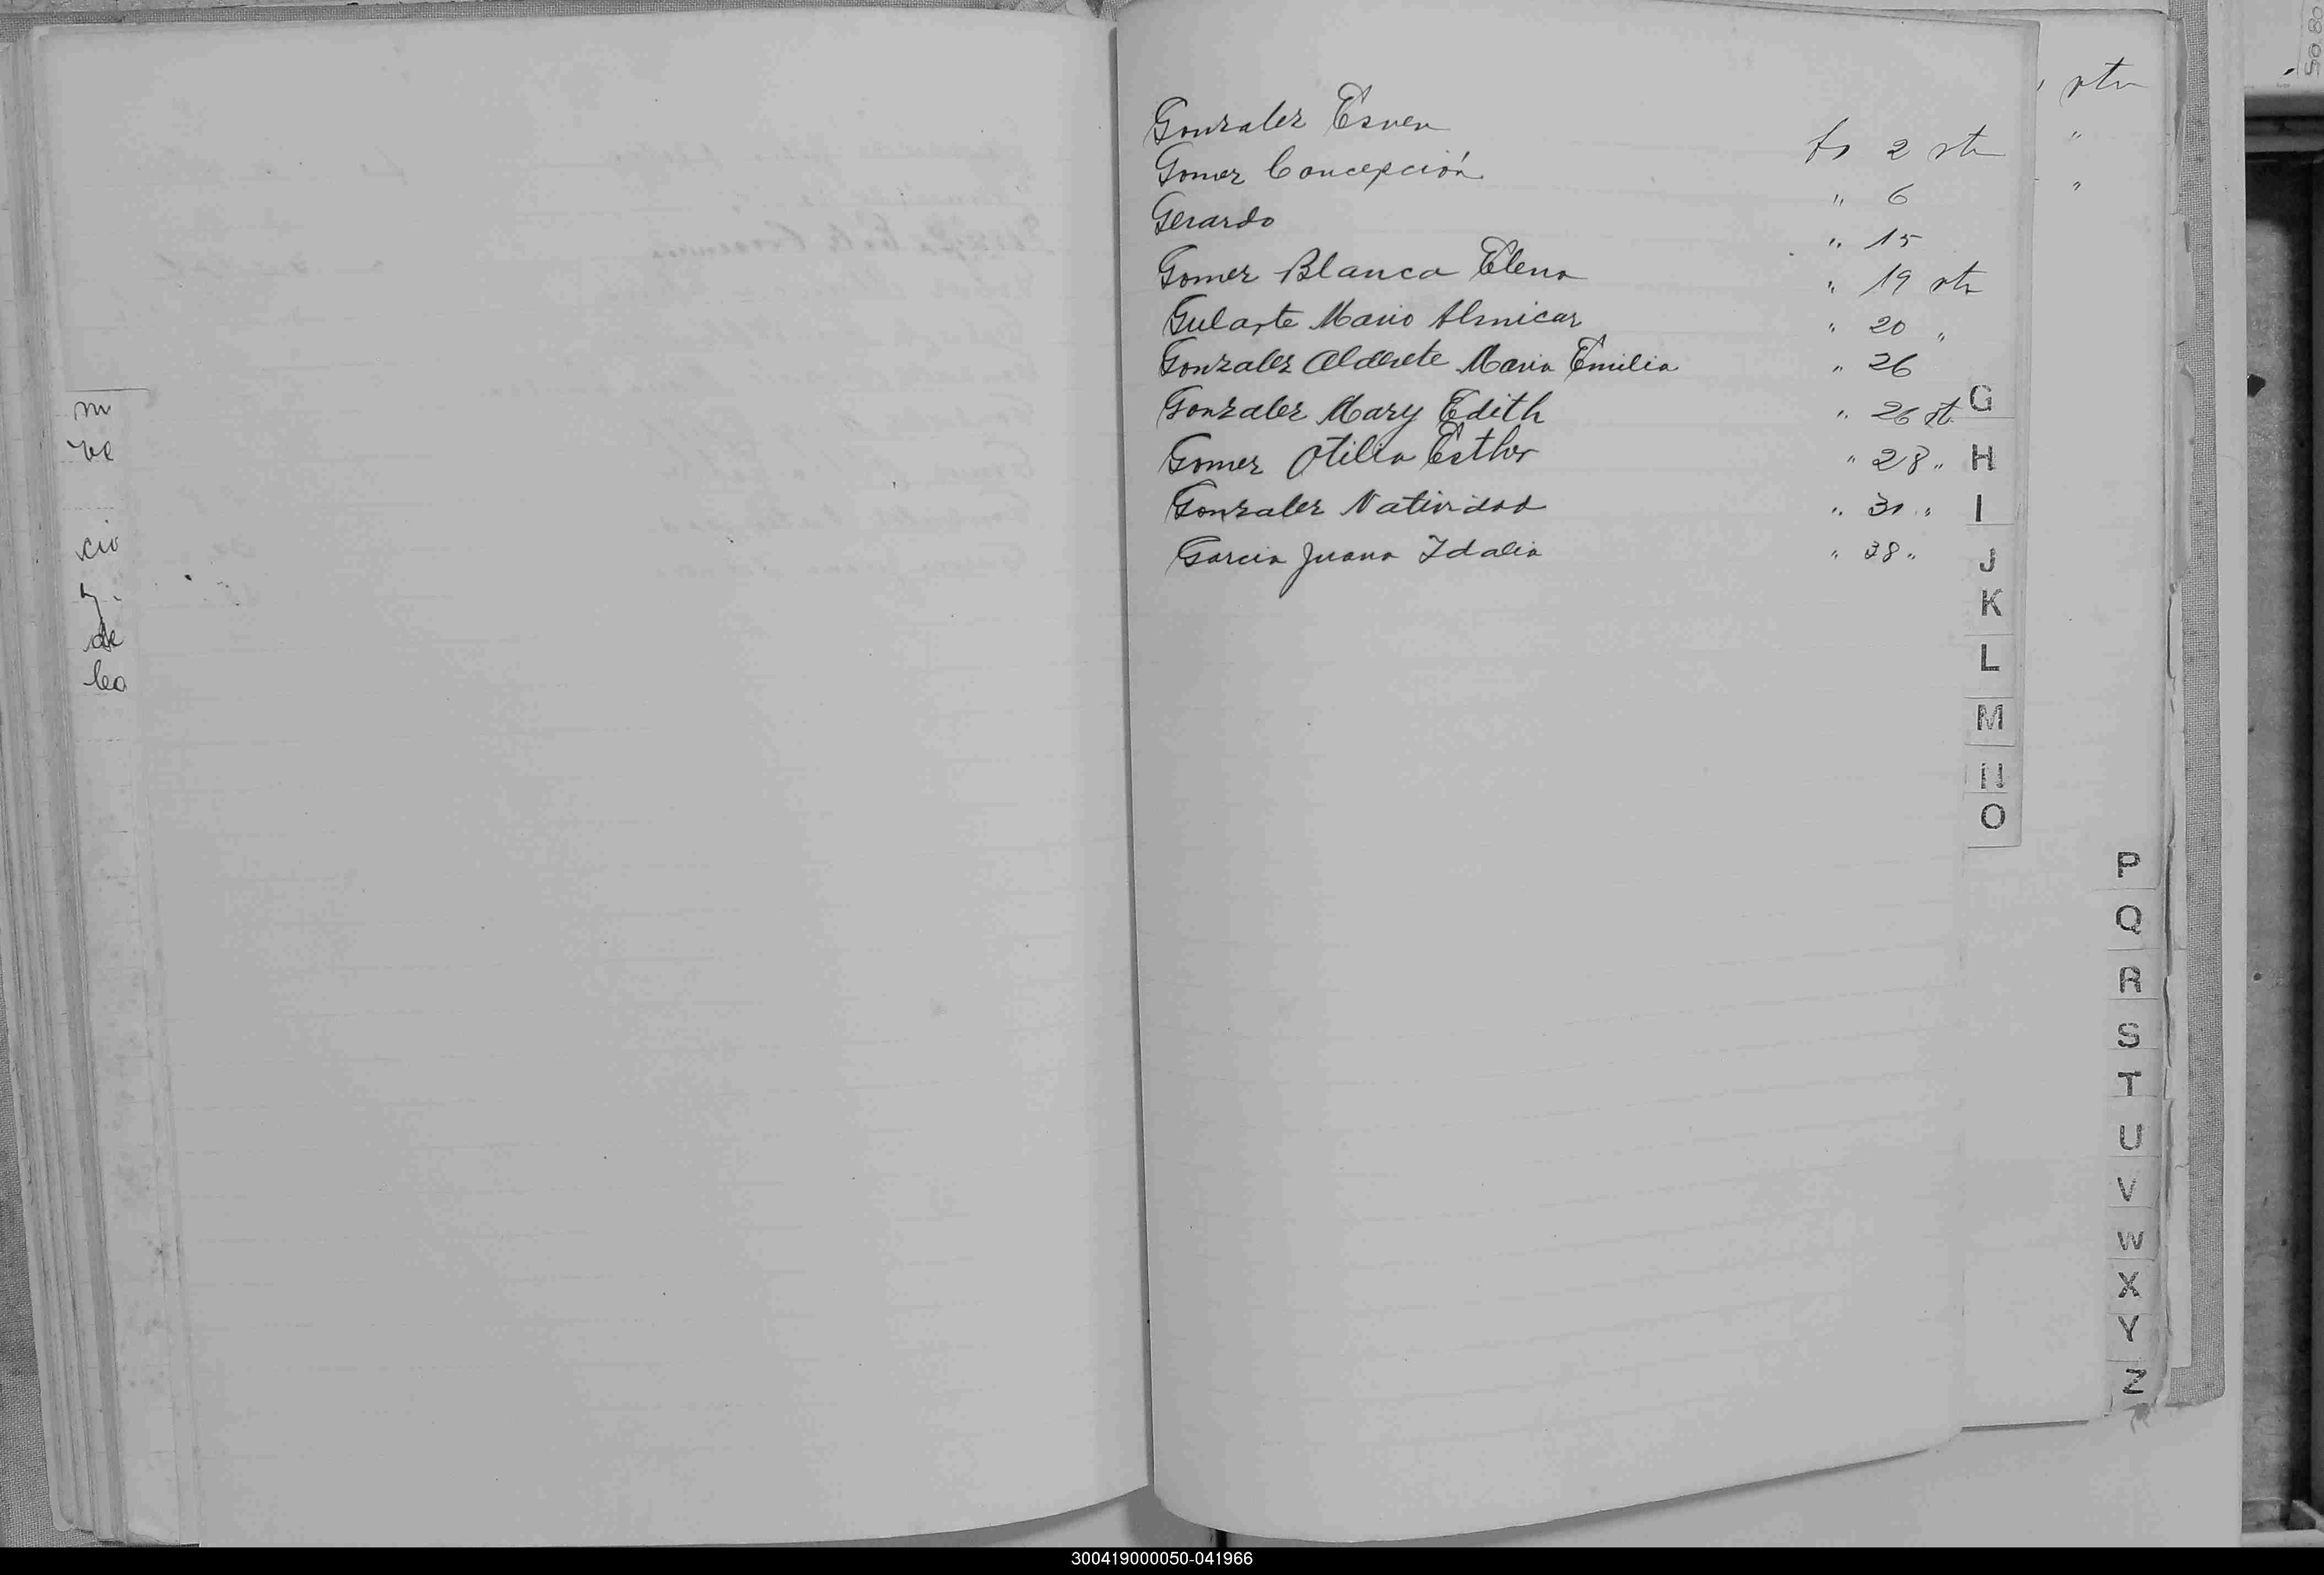 m
ve
cio
y.
de
ba
Gonzalez Esven fs 2 vta
Gomez Concepción " 6
Gerardo " 15
Gomez Blanca Elena " 19 vta
Gularte Mario Almicar " 20 "
Gonzalez Alderete Maria Emilia " 26
Gonzalez Mary Edith " 26 vt
Gomez Otilia Esther " 28 "
Gonzalez Natividad " 31 "
Garcia Juana Idalia " 38 "
vta
"
"
G
H
I
J
K
L
M
N
O
P
Q
R
S
T
U
V
W
X
Y
Z
300419000050-041966